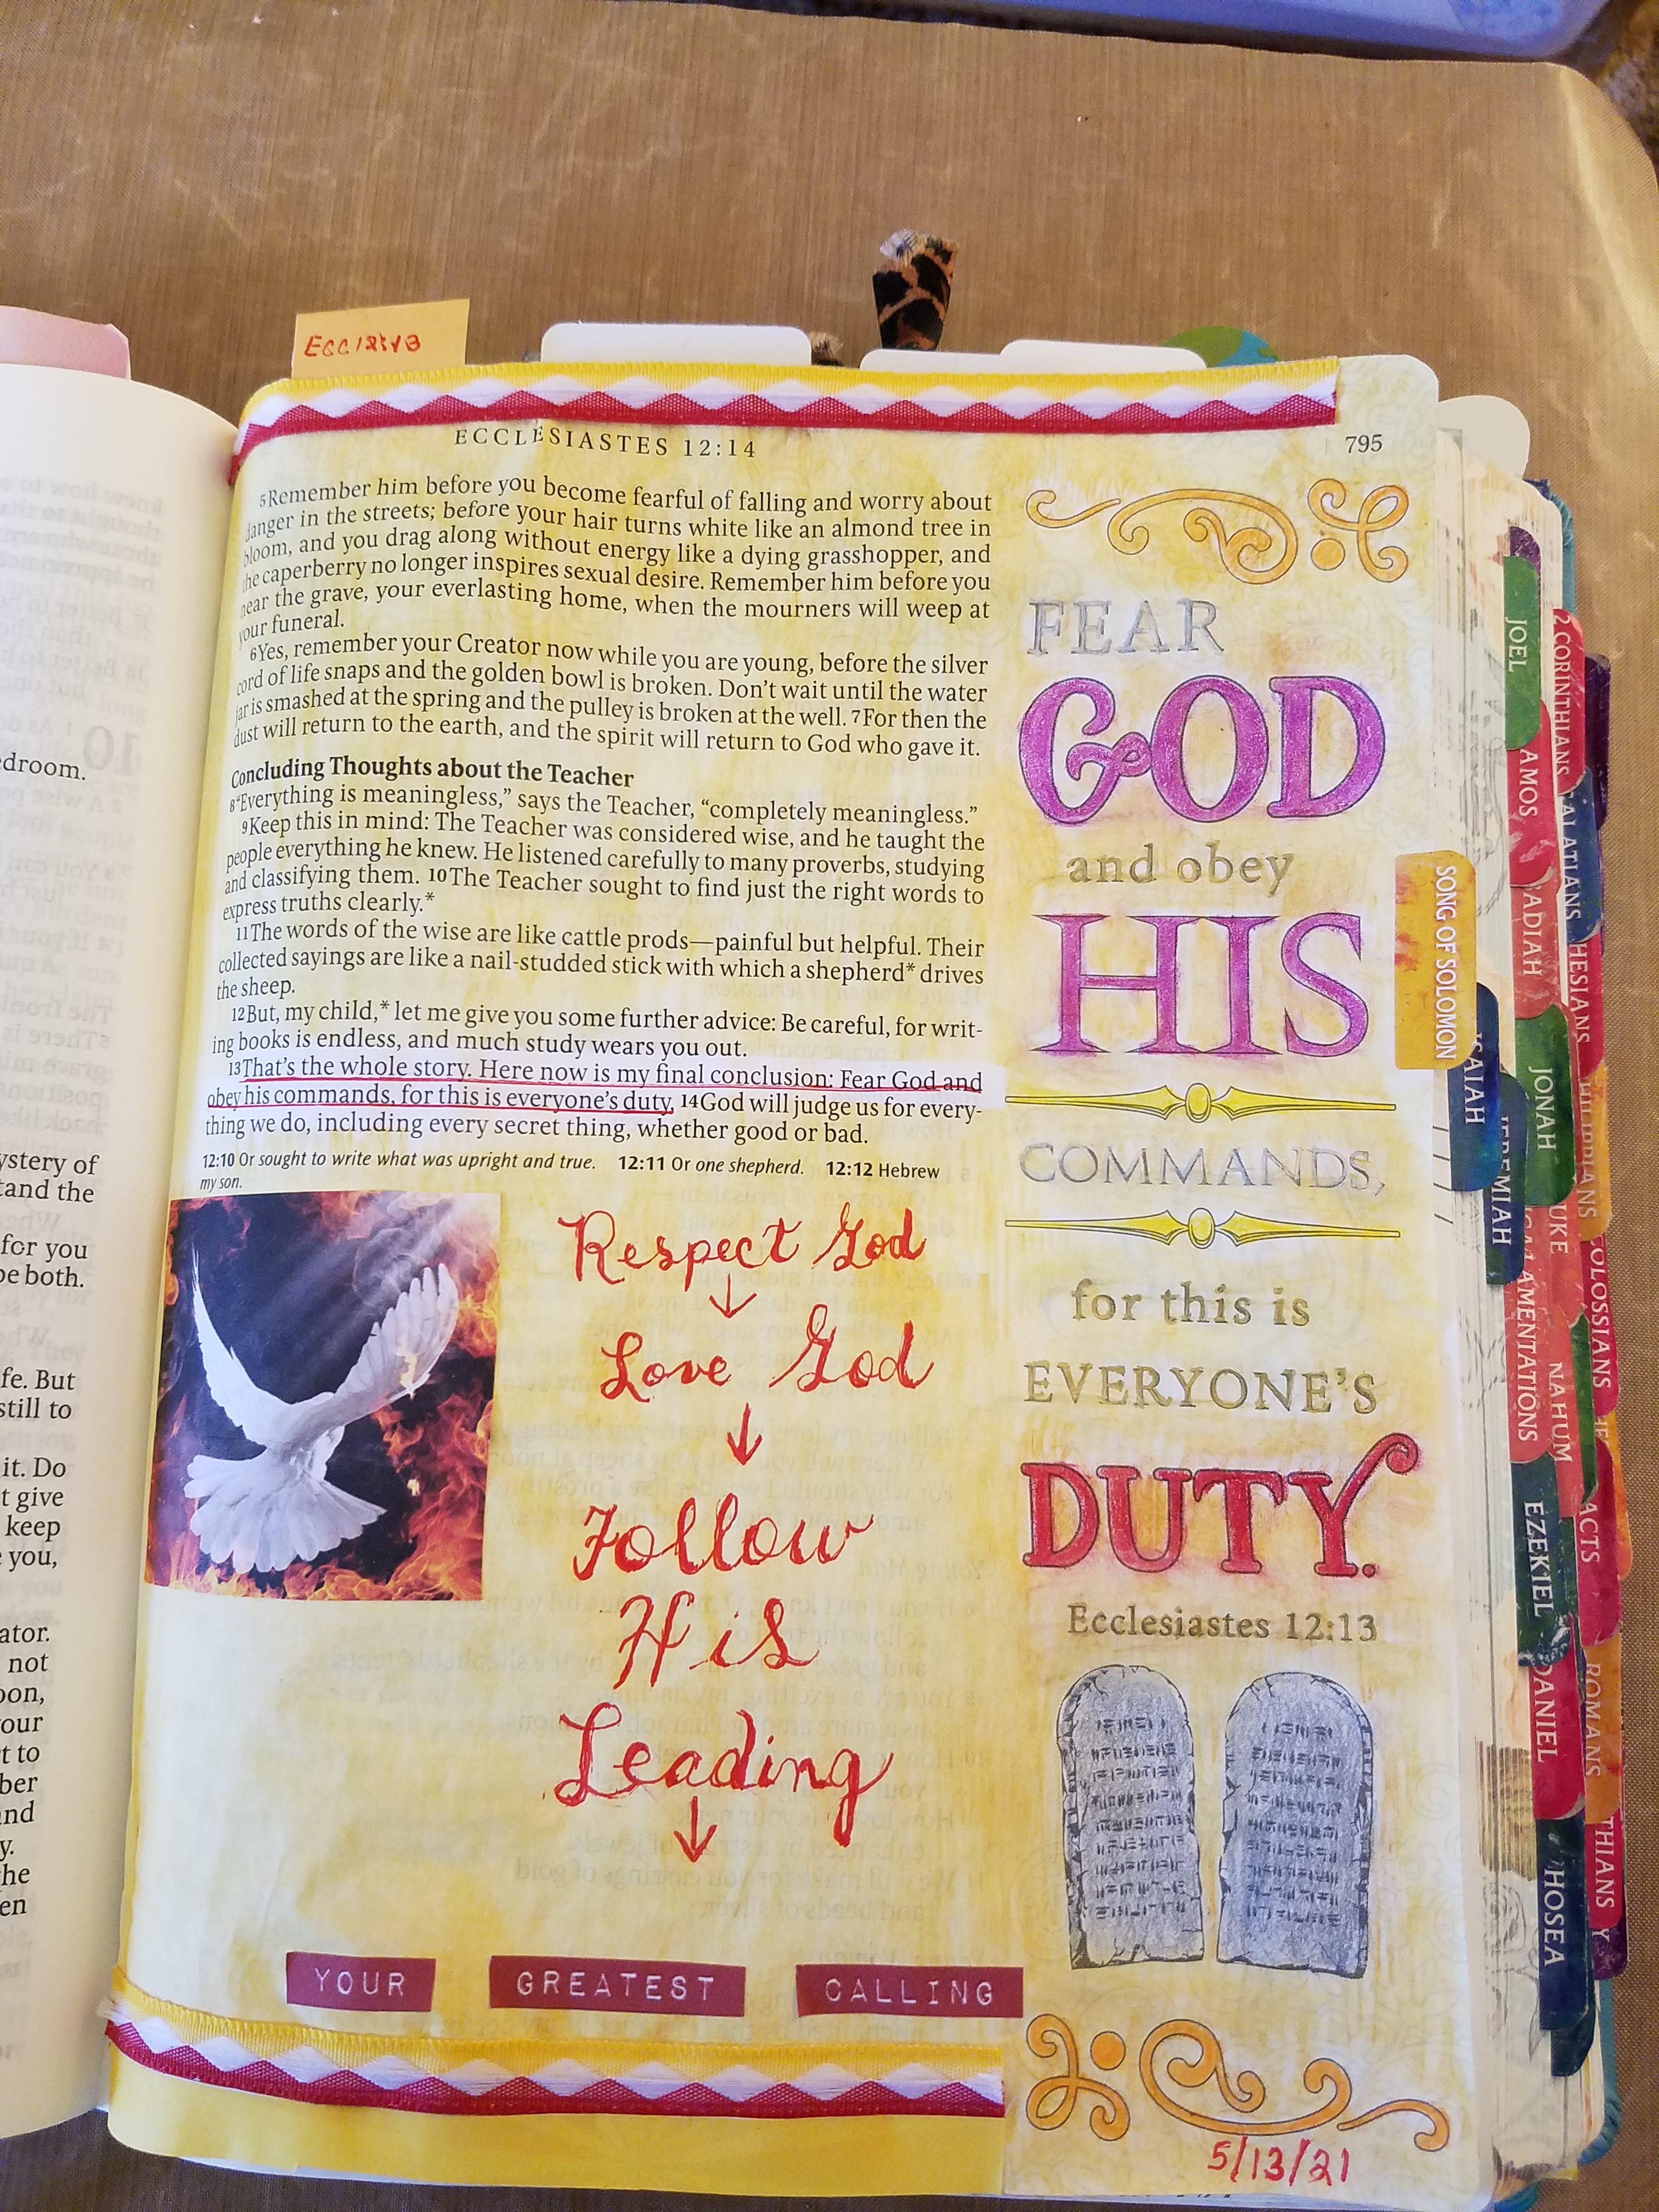 ECC 12:13
ECCLESIASTES 12:14
795
5Remember him before you become fearful of falling and worry about
danger in the streets; before your hair turns white like an almond tree in
bloom, and you drag along without energy like a dying grasshopper, and
the caperberry no longer inspires sexual desire. Remember him before you
near the grave, your everlasting home, when the mourners will weep at
your funeral.
6Yes, remember your Creator now while you are young, before the silver
cord of life snaps and the golden bowl is broken. Don't wait until the water
jar is smashed at the spring and the pulley is broken at the well. 7For then the
dust will return to the earth, and the spirit will return to God who gave it.
Concluding Thoughts about the Teacher
8“Everything is meaningless,” says the Teacher, “completely meaningless.”
9Keep this in mind: The Teacher was considered wise, and he taught the
people everything he knew. He listened carefully to many proverbs, studying
and classifying them. 10The Teacher sought to find just the right words to
express truths clearly.*
11The words of the wise are like cattle prods—painful but helpful. Their
collected sayings are like a nail-studded stick with which a shepherd* drives
the sheep.
12But, my child,* let me give you some further advice: Be careful, for writ-
ing books is endless, and much study wears you out.
13That's the whole story. Here now is my final conclusion: Fear God and
obey his commands, for this is everyone's duty. 14God will judge us for every-
thing we do, including every secret thing, whether good or bad.
12:10 Or sought to write what was upright and true. 12:11 Or one shepherd. 12:12 Hebrew
my son.
Respect God
Love God
Follow
His
Leading
YOUR GREATEST CALLING
FEAR
GOD
and obey
HIS
COMMANDS,
for this is
EVERYONE'S
DUTY.
Ecclesiastes 12:13
5/13/21
SONG OF SOLOMON
ISAIAH
JEREMIAH
LAMENTATIONS
EZEKIEL
DANIEL
HOSEA
JOEL
AMOS
JONAH
NAHUM
ACTS
ROMANS
2 CORINTHIANS
COLOSSIANS
droom.
ystery of
tand the
for you
be both.
fe. But
still to
it. Do
t give
keep
you,
ator.
not
oon,
our
t to
ber
nd
y.
he
en